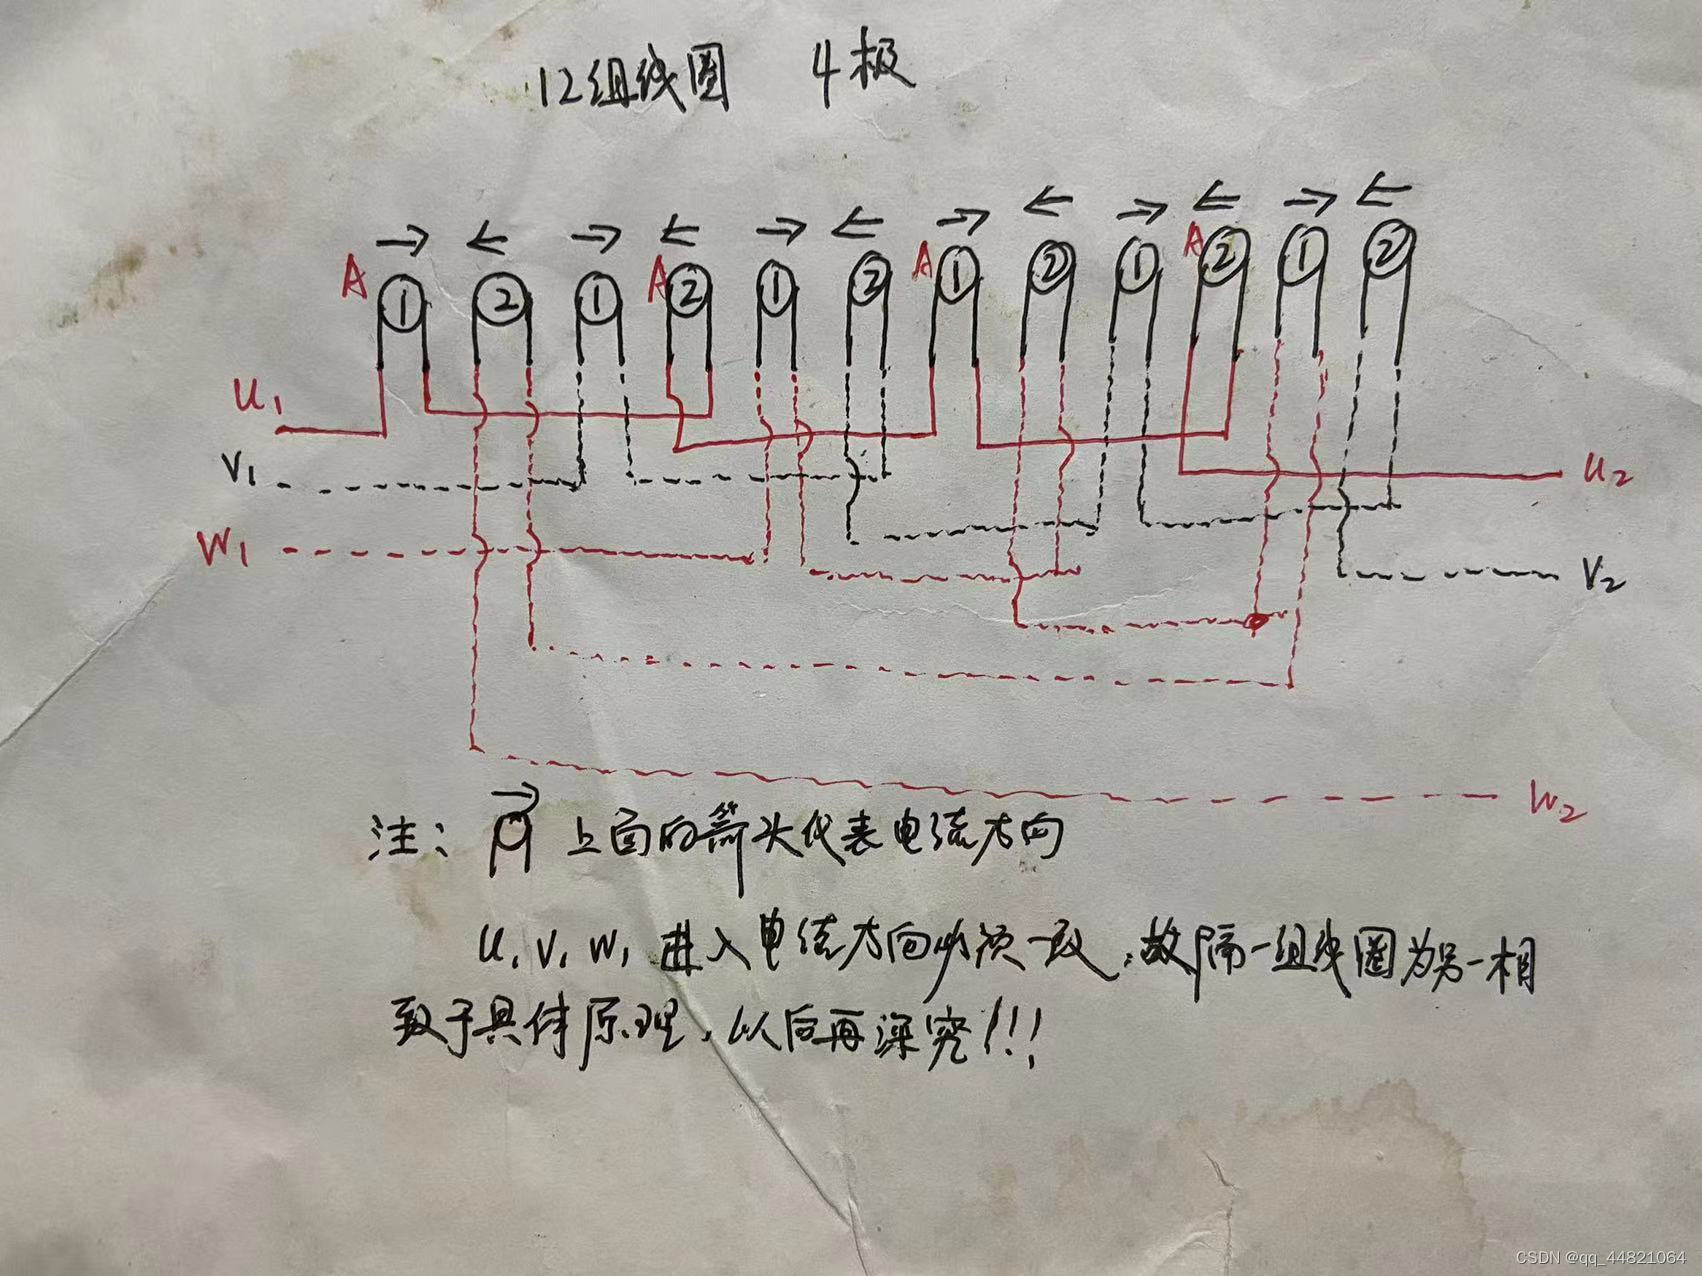 12组线圈 4极
A ① ② ① A ② ① ② A ① ② ① A ② ① ②
U₁
V₁
W₁
U₂
V₂
W₂
注: 上面的箭头代表电流方向
U₁ V₁ W₁ 进入电流方向必须一致,故隔一组线圈为另一相
致于具体原理,以后再深究!!!
CSDN @qq_44821064